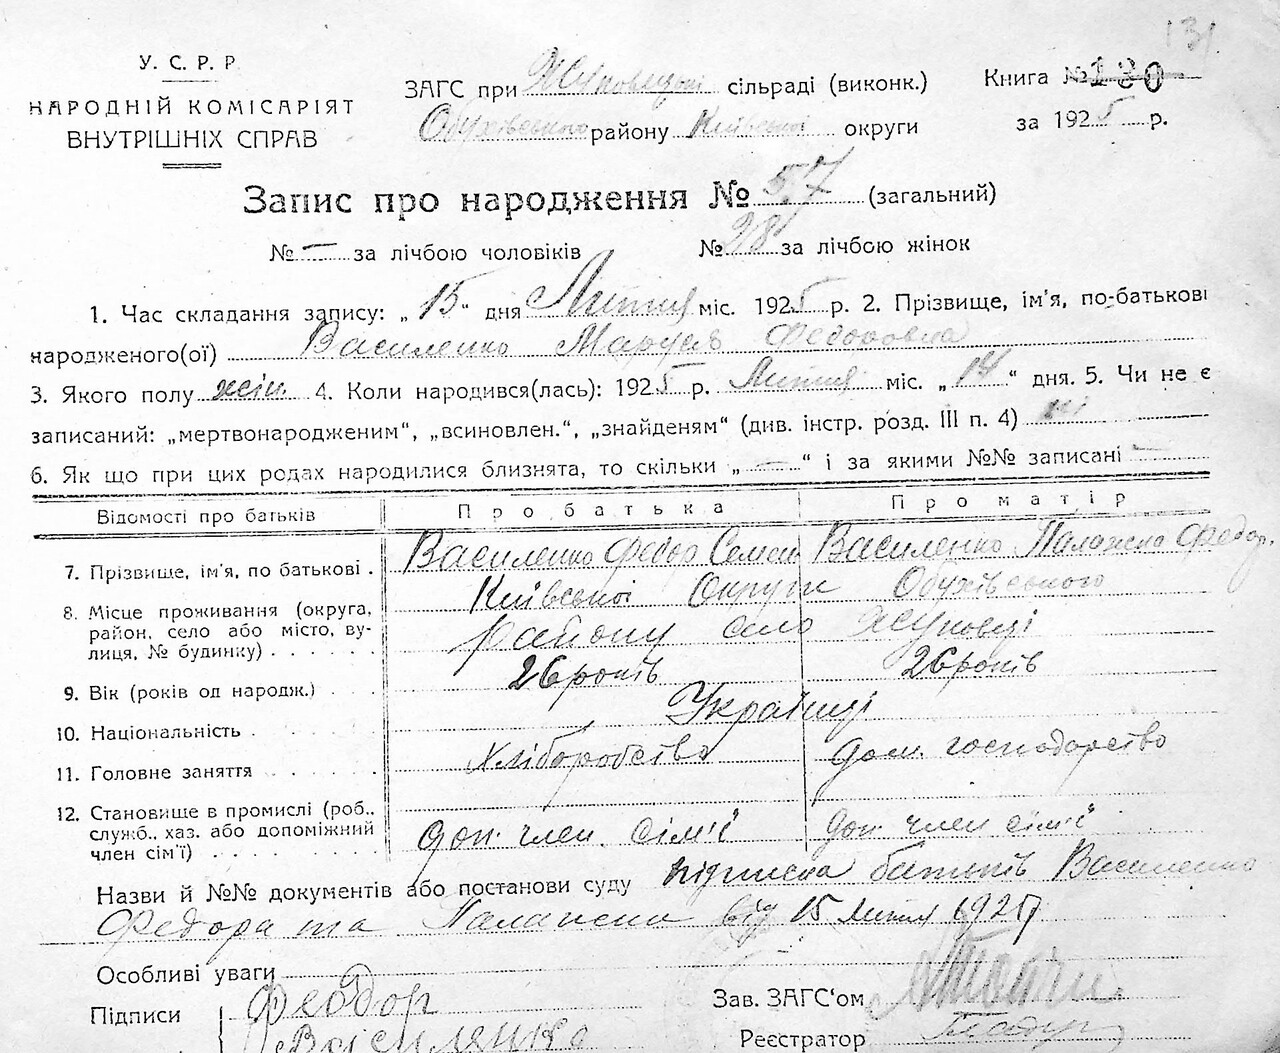 131
У. С. Р. Р.
НАРОДНІЙ КОМІСАРІЯТ
ВНУТРІШНІХ СПРАВ
ЗАГС при Жуковецькі сільраді (виконк.)
Обухівського району Київської округи
Книга № 130
за 1925 р.
Запис про народження № 57 (загальний)
№ — за лічбою чоловіків № 28 за лічбою жінок
1. Час складання запису: „ 15 “ дня Липня міс. 1925 р. 2. Прізвище, ім'я, по-батькові
народженого(ої) Василенко Маруся Федоровна
3. Якого полу жін. 4. Коли народився(лась): 1925 р. Липня міс. „ 14 “ дня. 5. Чи не є
записаний: „мертвонародженим“, „всиновлен.“, „знайденям“ (див. інстр. розд. III п. 4) ні
6. Як що при цих родах народилися близнята, то скільки „ — “ і за якими №№ записані —
Відомості про батьків Про батька Про матір
7. Прізвище, ім'я, по батькові . Василенко Федор Семен Василенко Палажка Федор.
8. Місце проживання (округа, Київської Округи Обухівського
район, село або місто, ву-
лиця, № будинку) . . . . . . району село Жуковці
9. Вік (років од народж.) . . 26 років 26 років
10. Національність . Українці
11. Головне заняття . . . . . . Хліборобство дом. господарство
12. Становище в промислі (роб.,
служб., хаз. або допоміжний
член сім'ї) . . . . . . . . доп. член. сім'ї доп. член сім'ї
Назви й №№ документів або постанови суду підписка батьків Василенко
Федора та Палажки від 15 Липня 1925
Особливі уваги
Підписи Феодор
Василянко
Зав. ЗАГС‘ом
Реєстратор